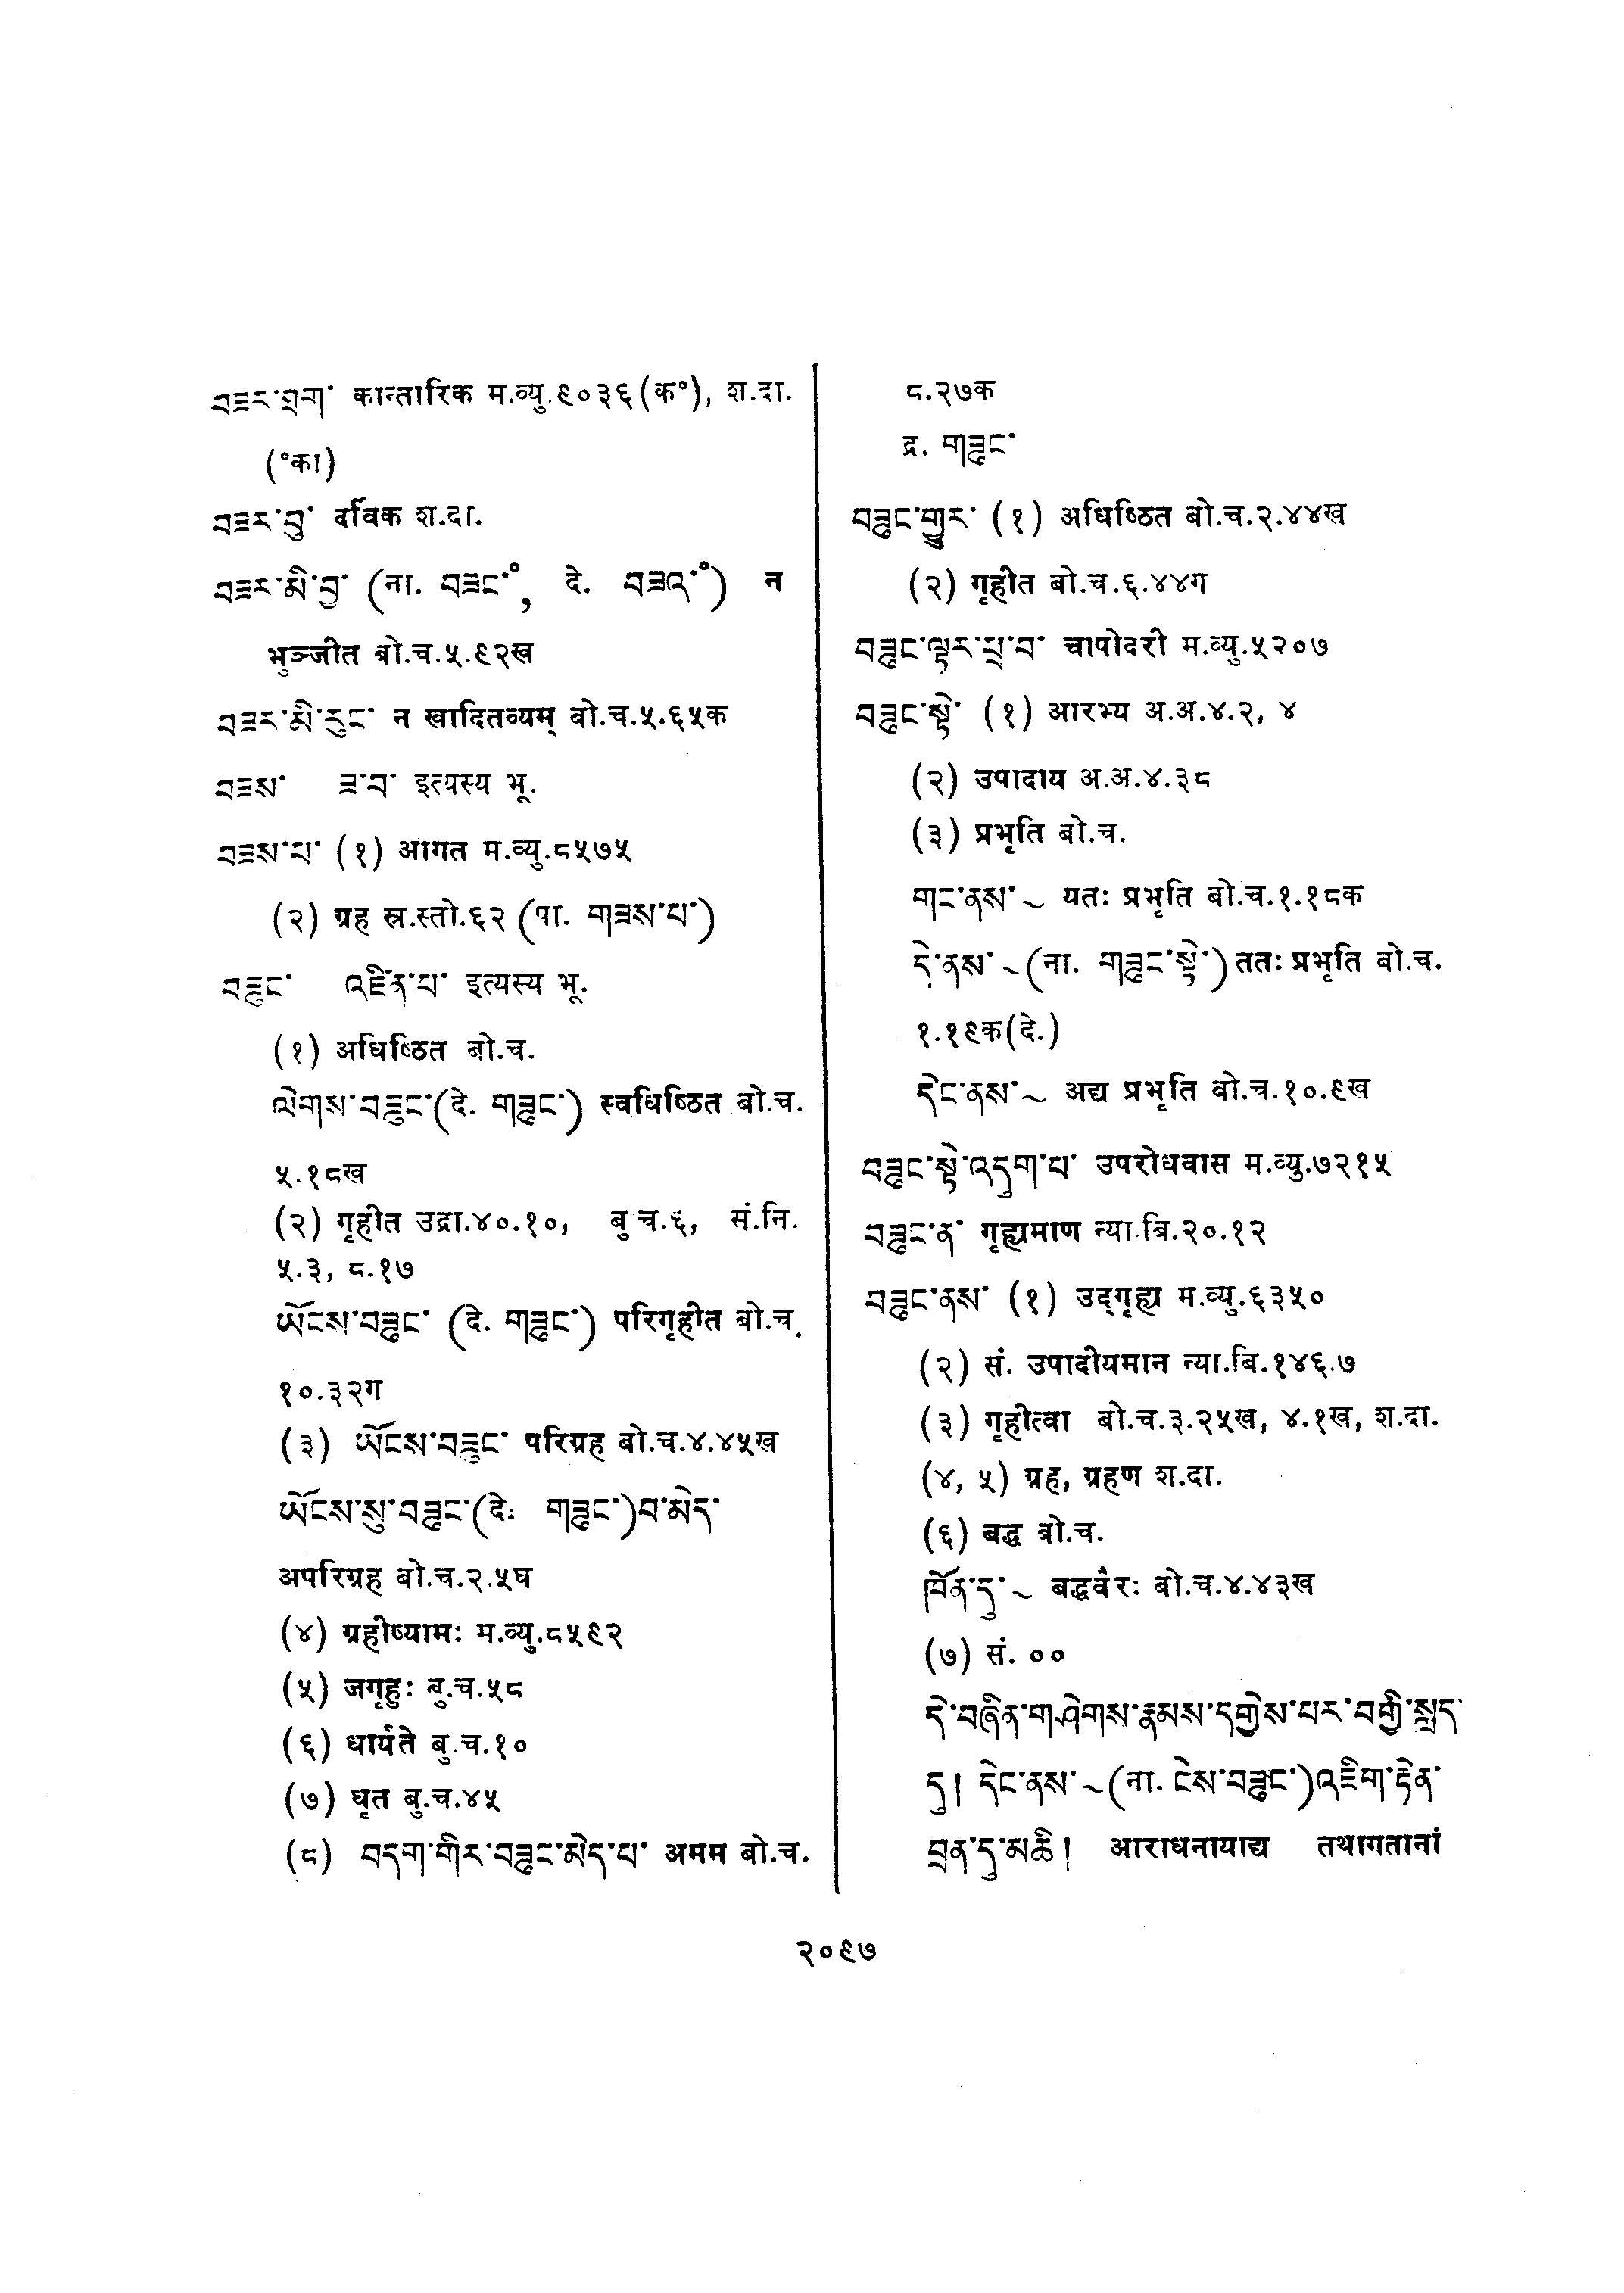 བཟར་བྲག་ कान्तारिक म.व्यु.९०३६(क°), श.दा.
(°का)
བཟར་བུ་ दर्विक श.दा.
བཟར་མི་བྱ་ (ना. བཟང་°, दे. བཟའ་°) न
भुञ्जीत बो.च.५.९२ख
བཟར་མི་རུང་ न खादितव्यम् बो.च.५.६५क
བཟས་ ཟ་བ་ इत्यस्य भू.
བཟས་པ་ (१) आगत म.व्यु.८५७५
(२) ग्रह स्र.स्तो.६२ (पा. གཟས་པ་)
བཟུང་ འཛིན་པ་ इत्यस्य भू.
(१) अधिष्ठित बो.च.
ལེགས་བཟུང་(दे. གཟུང་) स्वधिष्ठित बो.च.
५.१८ख
(२) गृहीत उद्रा.४०.१०, बु च.६, सं.नि.
५.३, ८.१७
ཡོངས་བཟུང་ (दे. གཟུང་) परिगृहीत बो.च.
१०.३२ग
(३) ཡོངས་བཟུང་ परिग्रह बो.च.४.४५ख
ཡོངས་སུ་བཟུང་(दे. གཟུང་)བ་མེད་
अपरिग्रह बो.च.२.५घ
(४) ग्रहीष्यामः म.व्यु.८५९२
(५) जगृहुः बु.च.५८
(६) धार्यते बु.च.१०
(७) धृत बु.च.४५
(८) བདག་གིར་བཟུང་མེད་པ་ अमम बो.च.
८.२७क
द्र. གཟུང་
བཟུང་གྱུར་ (१) अधिष्ठित बो.च.२.४४ख
(२) गृहीत बो.च.६.४४ग
བཟུང་ལྟར་ཕྲ་བ་ चापोदरी म.व्यु.५२०७
བཟུང་སྟེ་ (१) आरभ्य अ.अ.४.२, ४
(२) उपादाय अ.अ.४.३८
(३) प्रभृति बो.च.
གང་ནས་~ यतः प्रभृति बो.च.१.१८क
དེ་ནས་~(ना. གཟུང་སྟེ་) ततः प्रभृति बो.च.
१.१९क(दे.)
དེང་ནས་~ अद्य प्रभृति बो.च.१०.९ख
བཟུང་སྟེ་འདུག་པ་ उपरोधवास म.व्यु.७२१५
བཟུང་ན་ गृह्यमाण न्या.बि.२०.१२
བཟུང་ནས་ (१) उद्गृह्य म.व्यु.६३५०
(२) सं. उपादीयमान न्या.बि.१४६.७
(३) गृहीत्वा बो.च.३.२५ख, ४.१ख, श.दा.
(४, ५) ग्रह, ग्रहण श.दा.
(६) बद्ध बो.च.
ཁོན་དུ་~ बद्धवैरः बो.च.४.४३ख
(७) सं. ००
དེ་བཞིན་གཤེགས་རྣམས་དགྱེས་པར་བགྱི་སླད་
དུ། དེང་ནས་~(ना. ངེས་བཟུང་)འཇིག་རྟེན་
བྲན་དུ་མཆི། आराधनायाद्य तथागतानां
२०९७